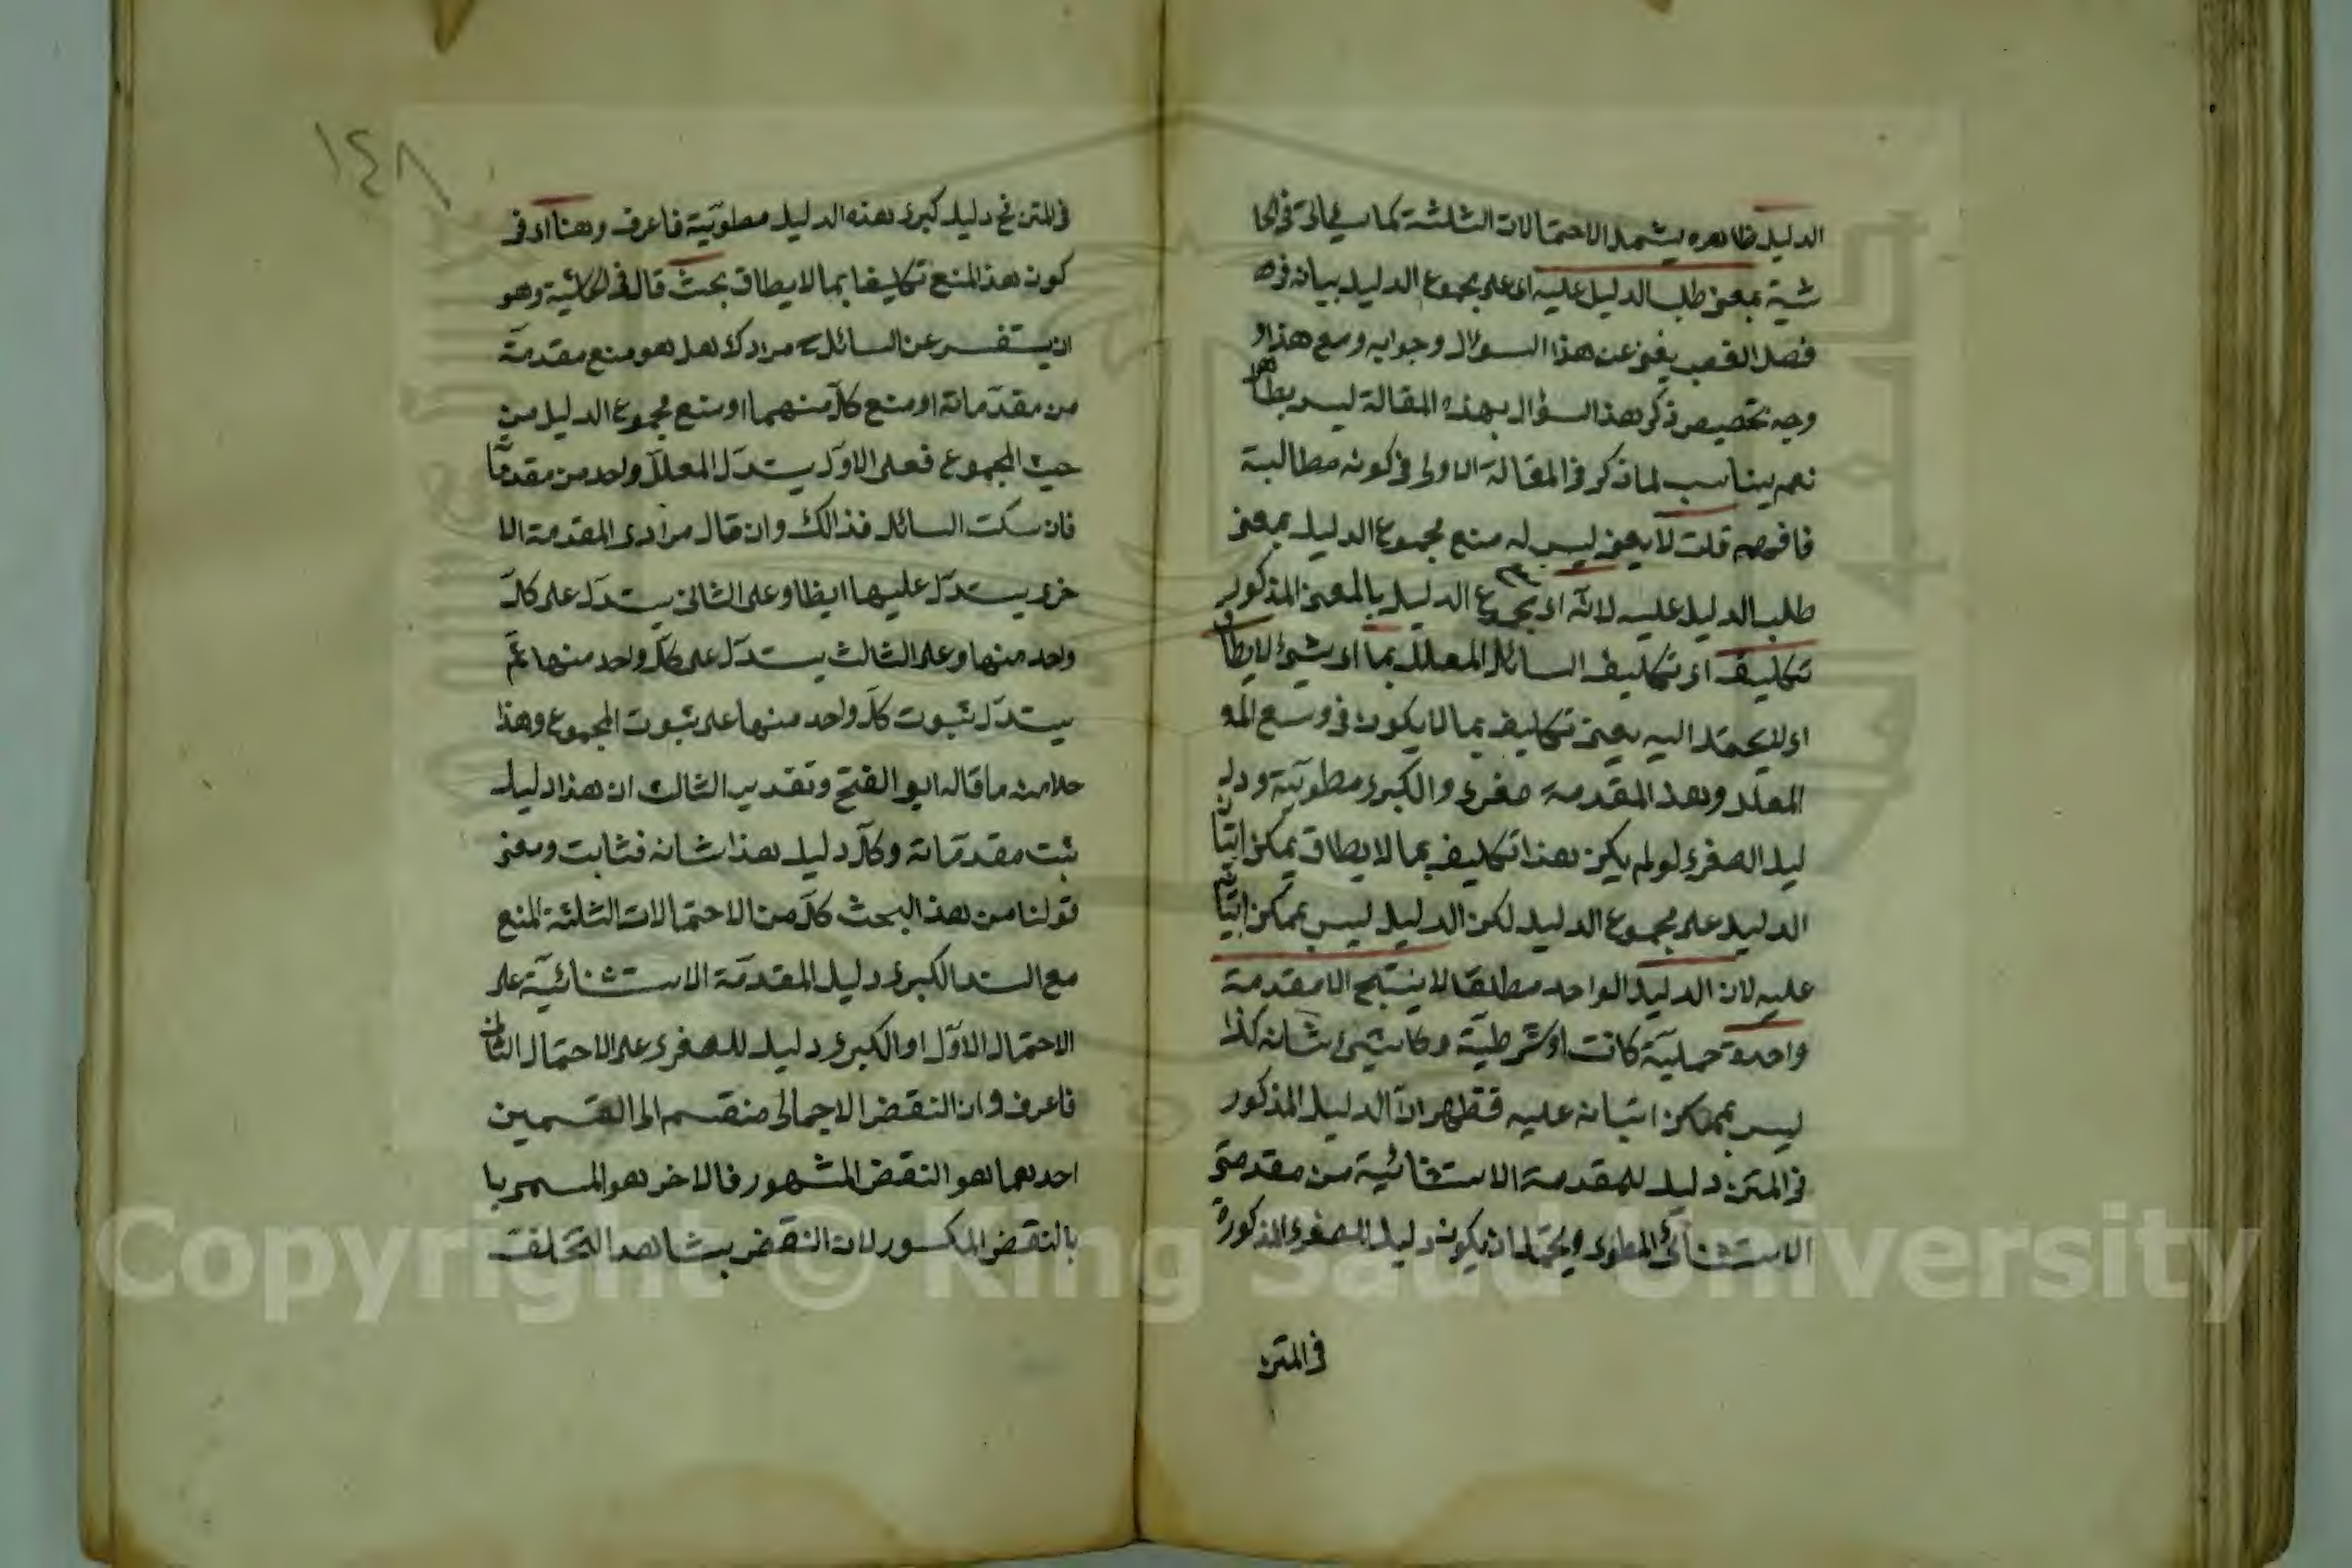 الدليل ظاهره يشمل الاحتمالات الثلثة كما سيأتى فى الحا
شية بمعنى طلب الدليل عليه اى على مجموع الدليل بيانه فى
فصل الغصب يغنى عن هذا السؤال وجوابه ومع هذا
وجه تخصيص ذكر هذا السؤال بهذه المقالة ليس بظاهر
نعم يناسب لما ذكر فى المقالة الاولى فى كونه مطالبة
فافهم قلت لا يعنى ليس له منع مجموع الدليل بمعنى
طلب الدليل عليه لانه اى مجموع الدليل بالمعنى المذكور
تكليف اى تكليف السائل المعلل بما اى شئ لا يطاق
اى لا يحتمل اليه يعنى تكليف بما لا يكون فى وسع
المعلل وهذ المقدمة صغرى والكبرى مطوية ود
ليل الصغرى لو لم يكن هذا تكليف بما لا يطاق يمكن اتيان
الدليل على مجموع الدليل لكن الدليل ليس بممكن اتيانه
عليه لان الدليل الواحد مطلقا لا ينتج الا مقدمة
واحدة حملية كانت او شرطية وكل شئ شانه كذا
ليس بممكن اتيانه عليه فظهر ان الدليل المذكور
فى المتن دليل للمقدمة الاستثنائية من مقدمتى
الاستثنائى المطوى ويحتمل ان يكون دليل الصغرى المذكورة
فى المتن
١٤٨
فى المتن دليل كبرى هذه الدليل مطوية فاعرف وهنا اى فى
كون هذ المنع تكليفا بما لا يطاق بحث قال فى الحاشية وهو
ان يستفسر عن السائل مرادك هل هو منع مقدمة
من مقدماته او منع كل منهما او منع مجموع الدليل من
حيث المجموع فعلى الاول يستدل المعلل واحد من مقدما
فان سكت السائل فذالك وان قال مرادى المقدمة الا
خرى يستدل عليها ايظا وعلى الثانى يستدل على كل
واحد منها وعلى الثالث يستدل على كل واحد منها ثم
يستدل ثبوت كل واحد منها على ثبوت المجموع وهذا
خلاصة ما قاله ابو الفتح وتقدير الثالث ان هذا دليل
ثبت مقدماته وكل دليل هذا شانه فثابت ومعنى
قولنا من هذ البحث كل من الاحتمالات الثلثة المنع
مع السند الكبرى دليل المقدمة الاستثنائية على
الاحتمال الاول او الكبرى دليل للصغرى على الاحتمال الثانى
فاعرف وان النقض الاجمالى منقسم الى القسمين
احدهما هو النقض المشهور فالاخر هو المسمى با
بالنقض المكسور لان النقض بشاهد التخلف
Copyright © King Saud University